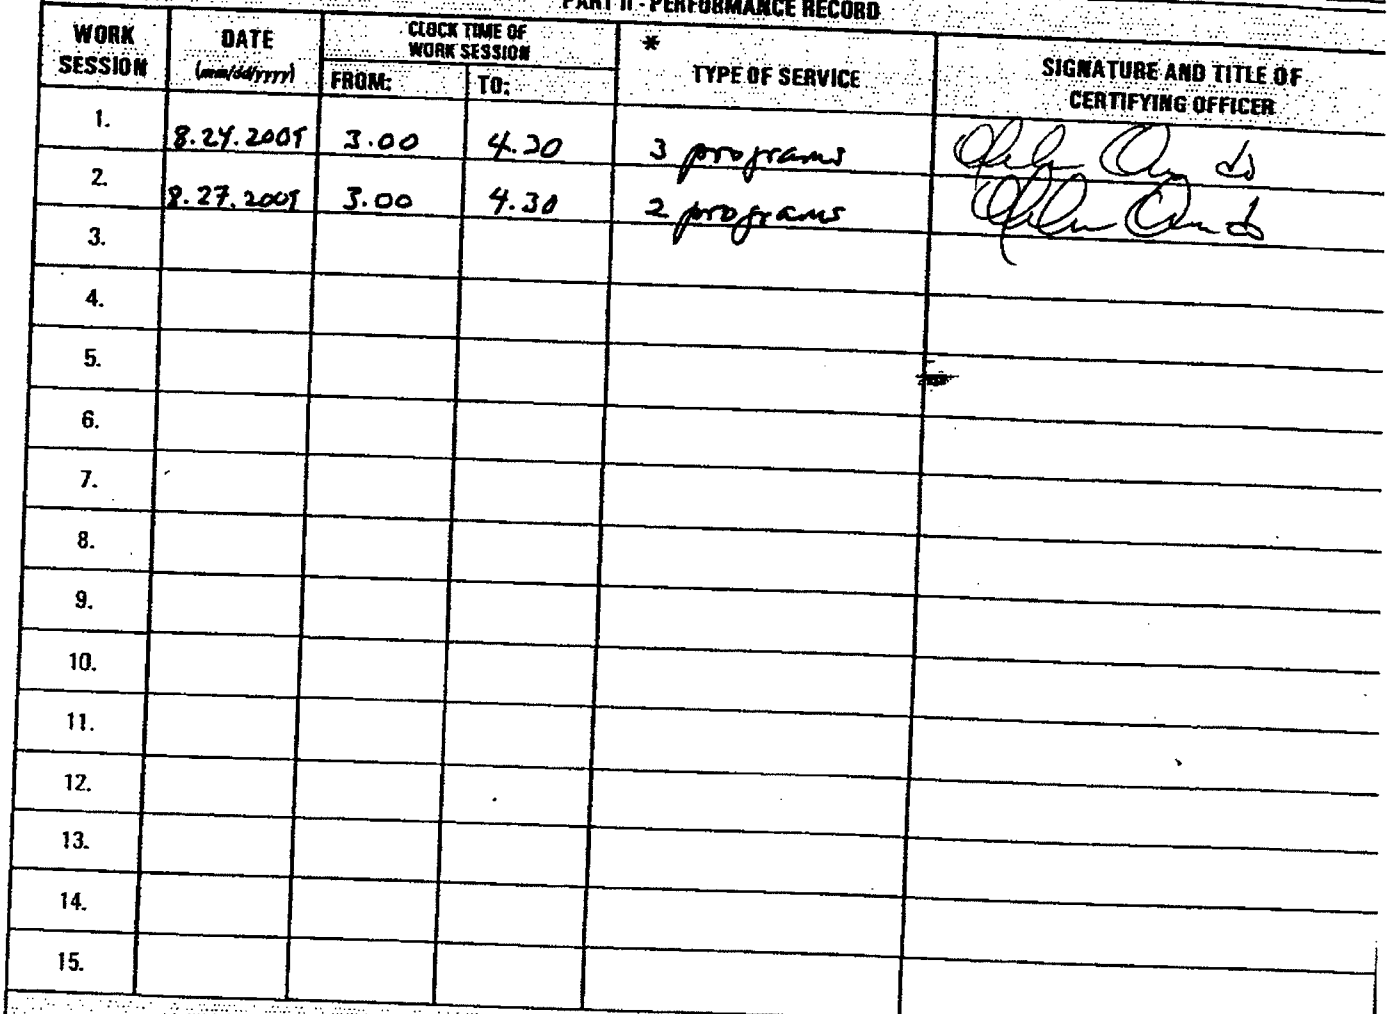 PART II - PERFORMANCE RECORD
WORK SESSION
DATE
(mm/dd/yyyy)
CLOCK TIME OF WORK SESSION
FROM:
TO:
*
TYPE OF SERVICE
SIGNATURE AND TITLE OF CERTIFYING OFFICER
1. 3.00 3 programs
2. 3.00 4.30 2 programs
3.
4.
5.
6.
7.
8.
9.
10.
11.
12.
13.
14.
15.